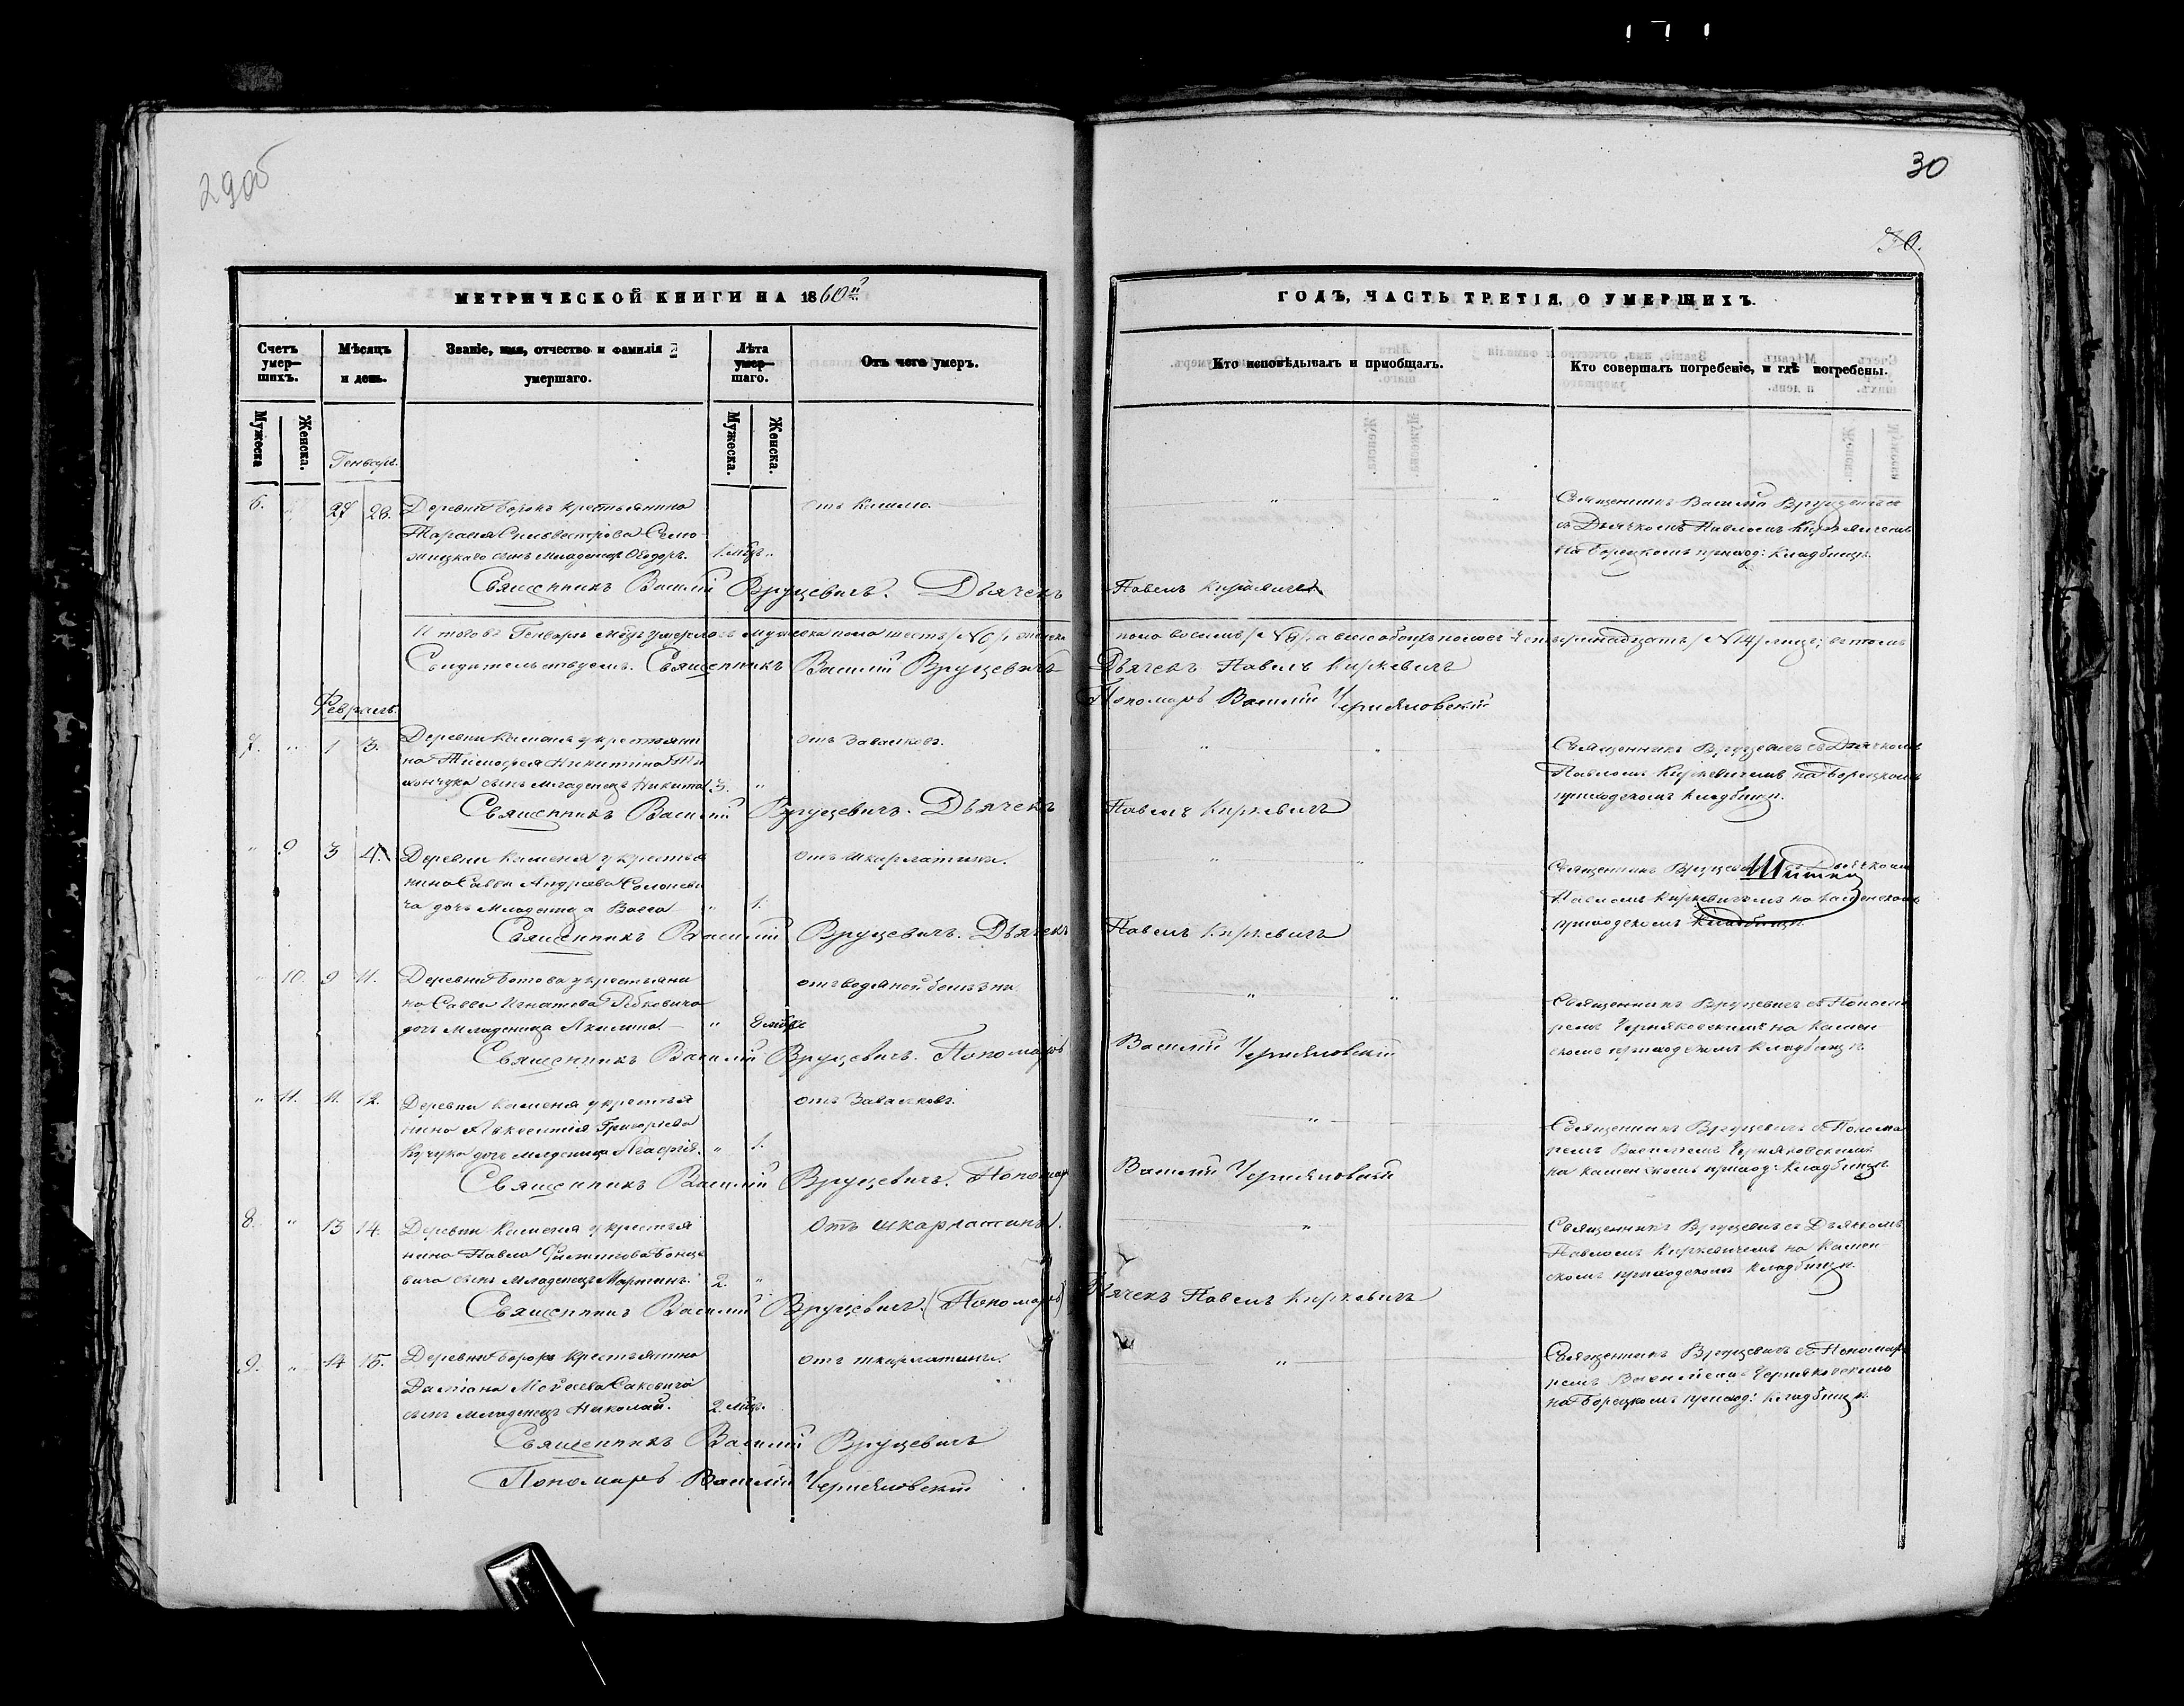 171
29об
30
30.
МЕТРИЧЕСКОЙ КНИГИ НА 1860й
ГОДЪ, ЧАСТЬ ТРЕТІЯ, О УМЕРШИХЪ.
Счетъ умер- шихъ.
Мѣсяцъ и день.
Званіе, имя, отчество и фамилія умершаго.
Лѣта умер- шаго.
Отъ чего умеръ.
Кто исповѣдывалъ и пріобщалъ.
Кто совершалъ погребеніе, и гдѣ погребены.
Мужеска
Женска.
Мужеска.
Женска.
Генварь.
6. 27 28. Деревни Борокъ крестьянина
Тараса Сильвестрова
сынъ младенецъ Ѳеодоръ. 1 мѣц.
Священникъ Василій Вруцевичъ
съ Дьячкомъ Павломъ
на Борецкомъ приход: кладбищѣ.
Священникъ Василій Вруцевичъ. Дьячекъ Павелъ Киркевичъ
Итого въ Генварѣ мѣцѣ умерло мужеска пола шесть /№6/ женска пола восемь /№8/ а всего обоего пола четырнадцать /№14/ лицъ; въ томъ
Свидетельствуемъ. Священникъ Василій Вруцевичъ Дьячекъ Павелъ Киркевичъ
Пономарь Василій Черняковскій
Февраль.
7. " 1 3. Деревни Каменя у крестьяни
на Тимофея Никитина
сынъ младенецъ Никита 3. "
отъ Завалковъ.
Священникъ Вруцевичъ съ Дьячкомъ
Павломъ Киркевичемъ на Борецкомъ
приходскомъ кладбищѣ.
Священникъ Василій Вруцевичъ. Дьячекъ Павелъ Киркевичъ
" 9 3 4. Деревни Каменя у крестья
нина Саввы Андреева Солоневи
ча дочь младеница Васса " 1.
отъ шкарлатины.
Священникъ Вруцевичъ съ Дьячкомъ
Павломъ Киркевичемъ на Каменскомъ
приходскомъ кладбищѣ.
Священникъ Василій Вруцевичъ. Дьячекъ Павелъ Киркевичъ
" 10. 9 11. Деревни Ботова у крестьяни
на Саввы Игнатова
дочь младеница Акилина. " 8 мѣц
отъ водяной болѣзни
Священникъ Вруцевичъ съ Понома
ремъ Черняковскимъ на Камен
скомъ приходскомъ кладбищѣ.
Священникъ Василій Вруцевичъ. Пономарь Василій Черняковскій
" 11. 11. 12. Деревни Каменя у крестья
нина Григорьева
Кучука дочь младеница " 1.
отъ Завалковъ.
Священникъ Вруцевичъ съ Понома
ремъ Василіемъ Черняковскимъ
на Каменскомъ приход: кладбищѣ.
Священникъ Василій Вруцевичъ. Пономарь Василій Черняковскій
8. " 13 14. Деревни Каменя у крестья
нина Павла Филипова
вича сынъ младенецъ Мартинъ. 2. "
Отъ шкарлатины.
Священникъ Вруцевичъ съ Дьячкомъ
Павломъ Киркевичемъ на Камен
скомъ приходскомъ кладбищѣ.
Священникъ Василій Вруцевичъ. (Пономарь) Дьячекъ Павелъ Киркевичъ
9. " 14 15. Деревни Борокъ крестьянина
Даміана Мойсеева Саковича
сынъ младенецъ Николай. 2 мѣц.
отъ шкарлатины.
Священникъ Вруцевичъ съ Понома
ремъ Василіемъ Черняковскимъ
на Борецкомъ приход: кладбищѣ.
Священникъ Василій Вруцевичъ
Пономарь Василій Черняковскій